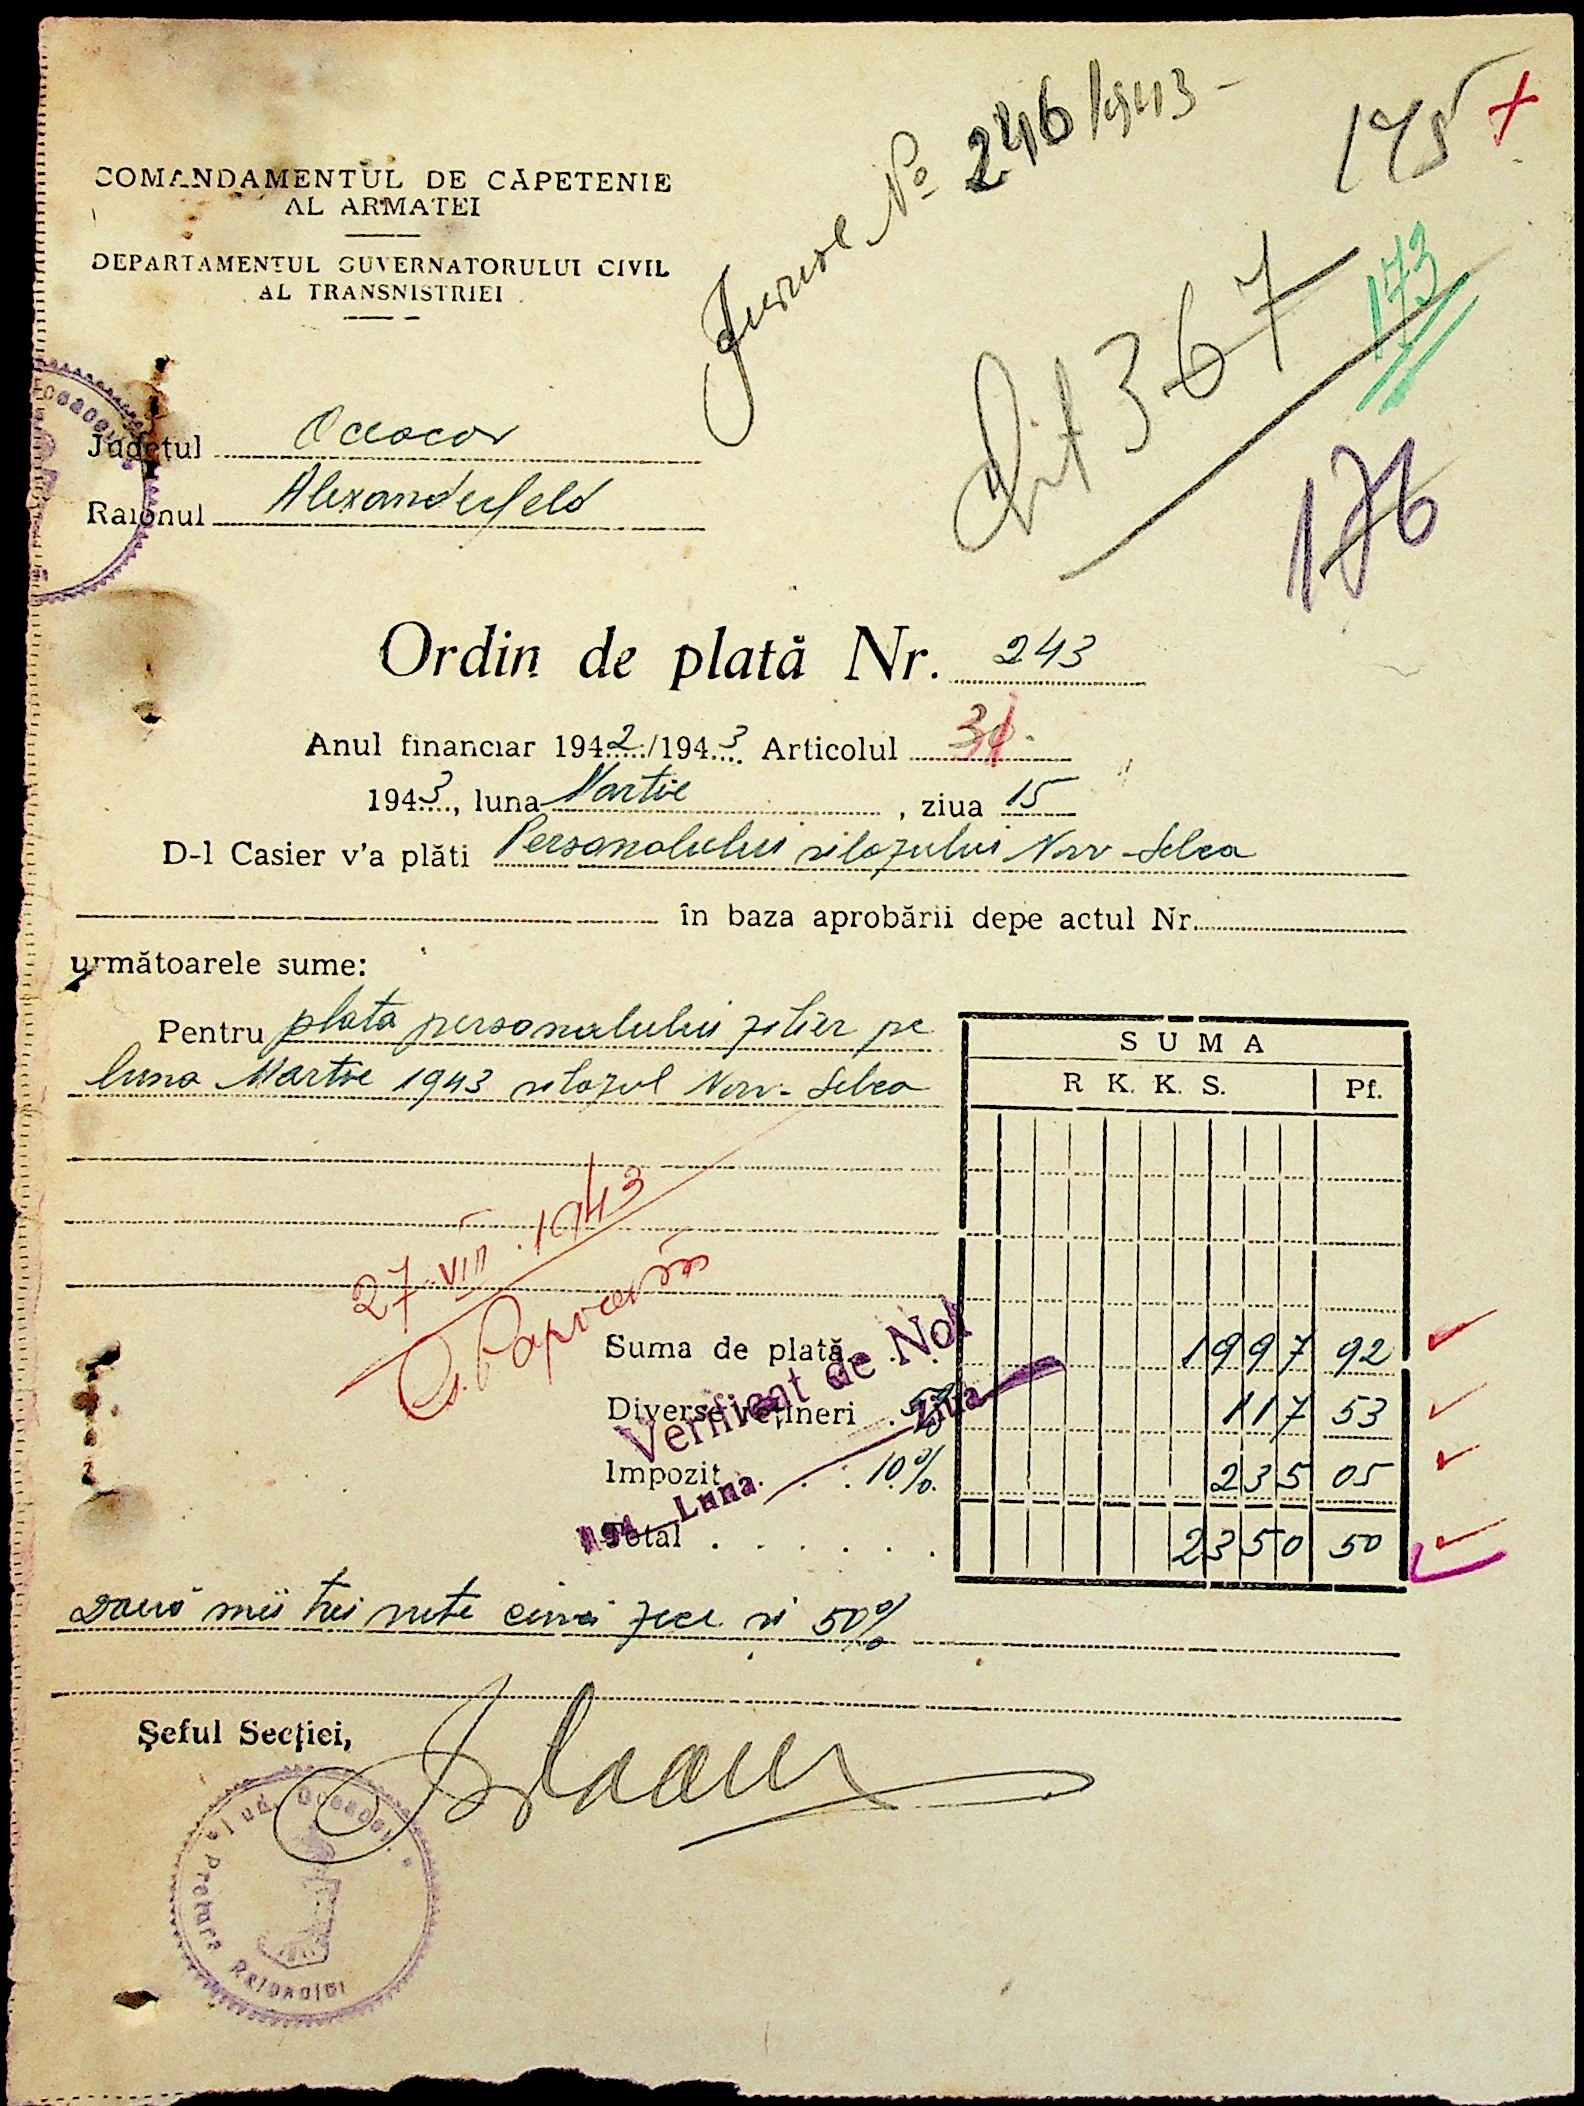 Jurnal No 246/943-
175 +
COMANDAMENTUL DE CĂPETENIE
AL ARMATEI
DEPARTAMENTUL GUVERNATORULUI CIVIL
AL TRANSNISTRIEI
173
Chit 367
176
Județul Oceacov
Raionul Alexanderfeld
Ordin de plată Nr. 243
Anul financiar 1942/1943 Articolul
1943, luna Martie, ziua 15
D-l Casier v'a plăti Personalului silozului Nov-Selca
în baza aprobării depe actul Nr.
următoarele sume:
Pentru plata personalului zilier pe
luna Martie 1943 silozul Nov-Selca
SUMA
R K. K. S. Pf.
27.VIII.1943
Suma de plată 1997 92
Verificat de Noi
Diverse rețineri 5% 117 53
Ziua
Impozit 10% 235 05
194 Luna
Total 2350 50
Două mii trei sute cinci zece si 50%
Șeful Secției,
Jud. Oceacov
Pretura Raionului